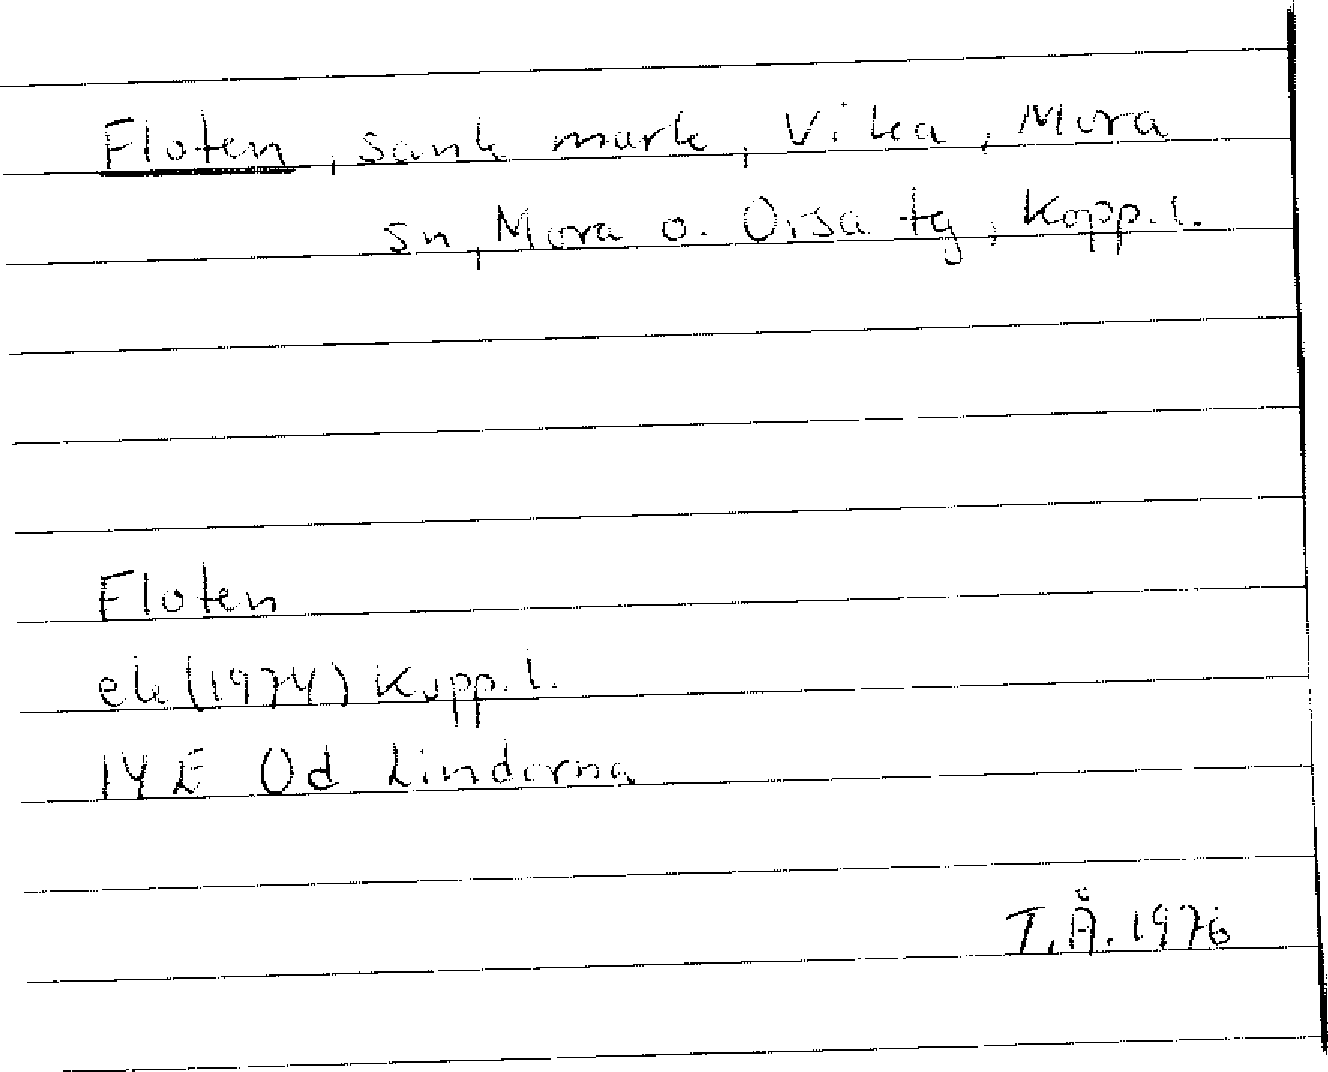 Floten, sank mark, Vika, Mora
sn, Mora o. Orsa tg, Kopp. l.
Floten
ek (1974) Kopp. l.
14 E 0d Lindorna
T.Å. 1976